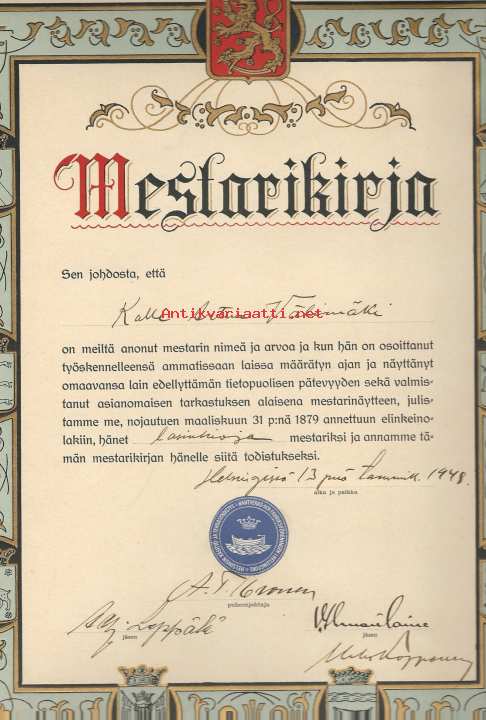 Mestarikirja
Sen johdosta, että
Kalle Välimäki
Antikvariaatti.net
on meiltä anonut mestarin nimeä ja arvoa ja kun hän on osoittanut
työskennelleensä ammatissaan laissa määrätyn ajan ja näyttänyt
omaavansa lain edellyttämän tietopuolisen pätevyyden sekä valmis-
tanut asianomaisen tarkastuksen alaisena mestarinäytteen, julis-
tamme me, nojautuen maaliskuun 31 p:nä 1879 annettuun elinkeino-
lakiin, hänet mestariksi ja annamme tä-
män mestarikirjan hänelle siitä todistukseksi.
Helsingissä 13 p:nä tammik. 1948.
aika ja paikka
puheenjohtaja
Leppälä
jäsen
V. Ilmanlaine
jäsen